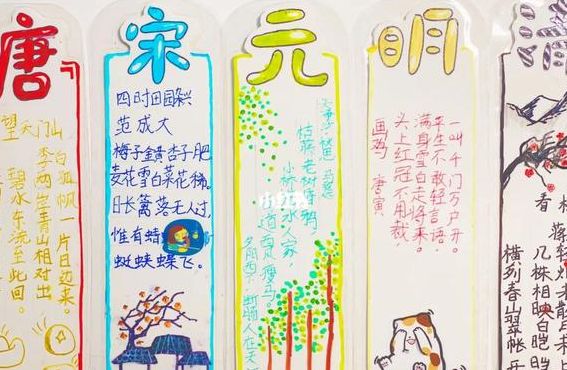 唐
望天门山
李白
碧水东流至此回。
两岸青山相对出
孤帆一片日边来。
宋
四时田园杂兴
范成大
梅子金黄杏子肥
麦花雪白菜花稀。
日长篱落无人过,
惟有蜻
蜓蛱蝶飞。
元
枯藤老树昏鸦,
小桥流水人家,
古道西风瘦马。
夕阳西下,断肠人在天
小红书
明
画鸡 唐寅
头上红冠不用裁,
满身雪白走将来。
平生不敢轻言语,
一叫千门万户开。
清
看
横列春山翠帐开